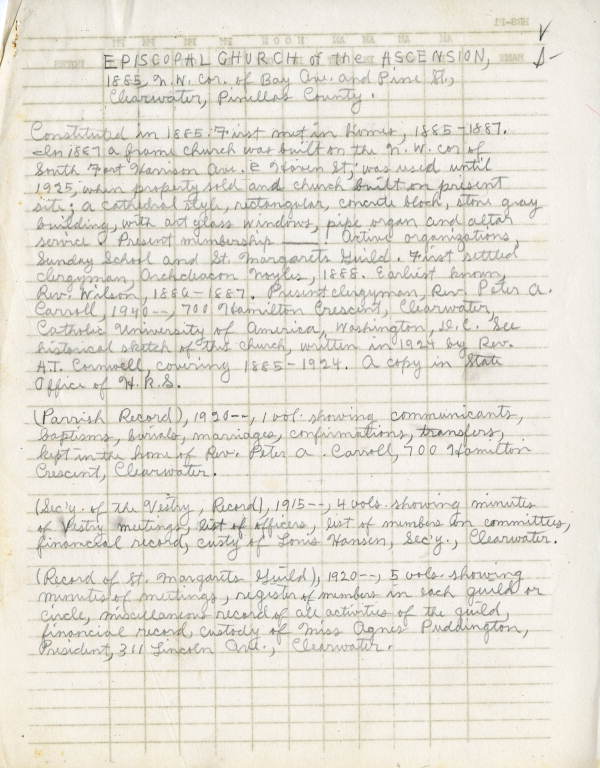 EPISCOPAL CHURCH of the ASCENSION,
1885, N.W. cor. of Bay Ave. and Pine St.,
Clearwater, Pinellas County.
Constituted in 1885. First met in homes, 1885-1887.
In 1887 a frame church was built on the N.W. cor of
South Fort Harrison Ave. & Haven St; was used until
1925, when property sold and church built on present
site; a cathedral style, rectangular, concrete block, stone gray
building, with art glass windows, pipe organ and altar
service. Present membership ——. Active organizations,
Sunday School and St. Margarets Guild. First settled
clergyman, Archdeacon 1888. Earliest known,
Rev. Wilson, 1886-1887. Present clergyman, Rev. Peter A.
Carroll, 1940--, 700 Hamilton Crescent, Clearwater,
Catholic University of America, Washington, D.C. See
historical sketch of this church, written in 1924 by Rev.
A.T. Cornwell, covering 1885-1924. A copy in State
Office of H.R.S.
(Parrish Record), 1920--, 1 vol. showing communicants,
baptisms, burials, marriages, confirmations, transfers,
kept in the home of Rev. Peter A. Carroll, 700 Hamilton
Crescent, Clearwater.
(Sec'y. of the Vestry, Record), 1915--, 4 vols. showing minutes
of Vestry meetings, list of officers, list of members on committees,
financial record, custy of Louis Hansen, Sec'y., Clearwater.
(Record of St. Margarets Guild), 1920--, 5 vols. showing
minutes of meetings, register of members in each guild or
circle, miscellaneous record of all activities of the guild,
financial record, custody of Miss Agnes Puddington,
President, 311 Lincoln Ave., Clearwater.